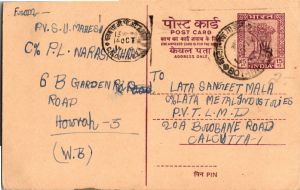 From:-
PV. S. U. MAHESH
C/o P.L. NARAS
6 B GARDEN
ROAD
Howrah - 3
(W.B)
पोस्ट कार्ड
POST CARD
केवल पता
ADDRESS ONLY
भारत
INDIA
TO
LATA SANGEET MALA
C/o LATA METAL INDUSTRIES
P.V.T. L.M.D
20A BROBANE ROAD
CALCUTTA-1
पिन PIN